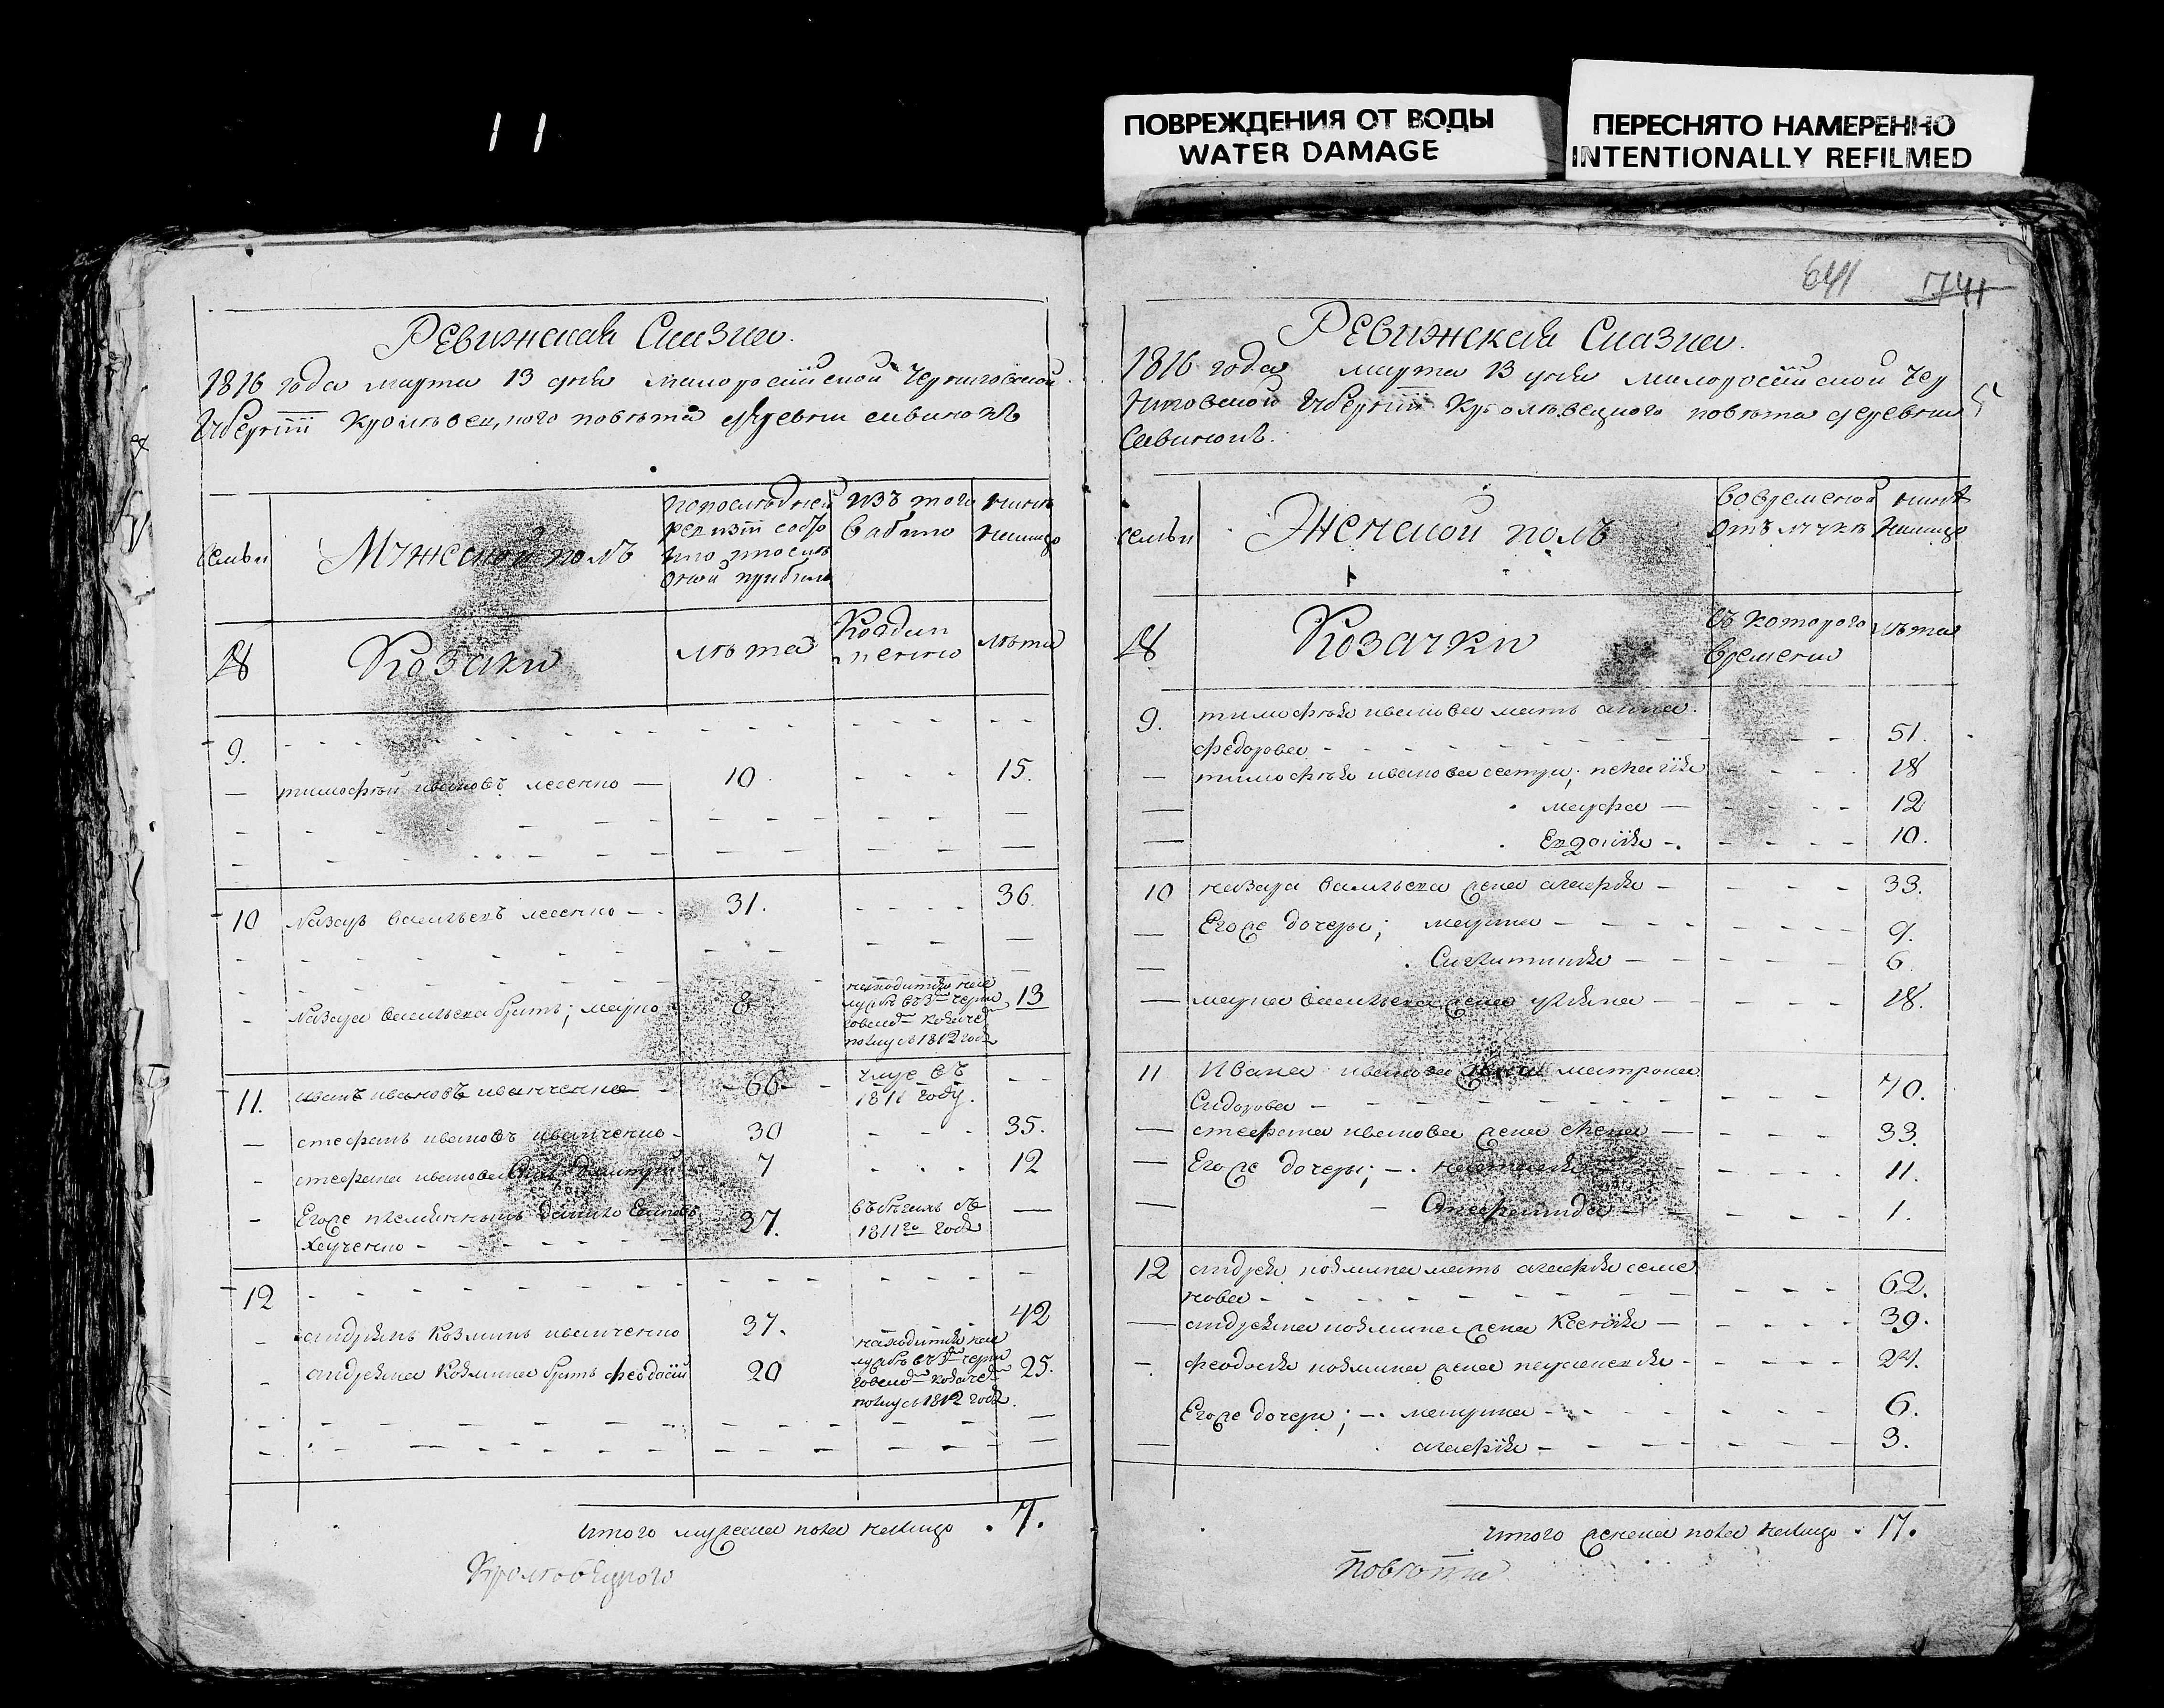 11
ПОВРЕЖДЕНИЯ ОТ ВОДЫ
WATER DAMAGE
ПЕРЕСНЯТО НАМЕРЕННО
INTENTIONALLY REFILMED
Ревижская Сказка.
1816 года марта 13 дня малоросiйской Черниговской
Губернiи Кролѣвецкого повѣта деревни савинокъ
семьи
Мужеской полъ
по последней
ревизiи состо
яло и после
оной прибыло
изъ того
выбыло
нынѣ
налицо
Козаки
лѣта
Когда и
лѣта
9.
тимофѣй ивановъ лесенко — 10. 15.
10 Назаръ васильевъ лесенко 31. 36.
Назара васильева братъ; марко 8 находитса на
13
полку с 1812 года
11. иванъ ивановъ иванченко 66 умре въ
1811 году.
стефанъ ивановъ иванченко 30 35.
стефана иванова сынъ дмитрiй 7 12
Егоже племянникъ данило
37. въ
1811го года
12
андрѣянъ козминъ иванченко 37. 42
андрѣяна козмина братъ феодосiй 20 находитса на
25.
полку с 1812 года.
итого мужеска пола налицо 7.
Кролѣвецкого
641 1741
Ревижская Сказка.
1816 года марта 13 дня малоросiйской Чер
ниговской Губернiи Кролѣвецкого повѣта деревни
Савинокъ.
5
семьи
Женской полъ
во временной
отлучкѣ
нынѣ
налицо
Козачки
съ которого
времени
лѣта
9. тимофѣя иванова мать анна
федорова 51.
тимофѣя иванова сестри; пелагiя 18
марфа — 12
Евдокiя 10.
10 назара васильева жена агафiя 33.
Егоже дочери; марина 9.
6.
марка васильева жена улiяна 18.
11 Ивана иванова жена матрона
Сидорова 70.
стефана иванова жена 33.
Егоже дочери; 11.
1.
12 андрѣя козмина мать агафiя семе
нова 62.
андрѣяна козмина жена Ксенiя 39.
феодосiя козмина жена 24.
Егоже дочери; марина 6.
агафiя 3.
итого женска пола налицо 17.
Повѣта